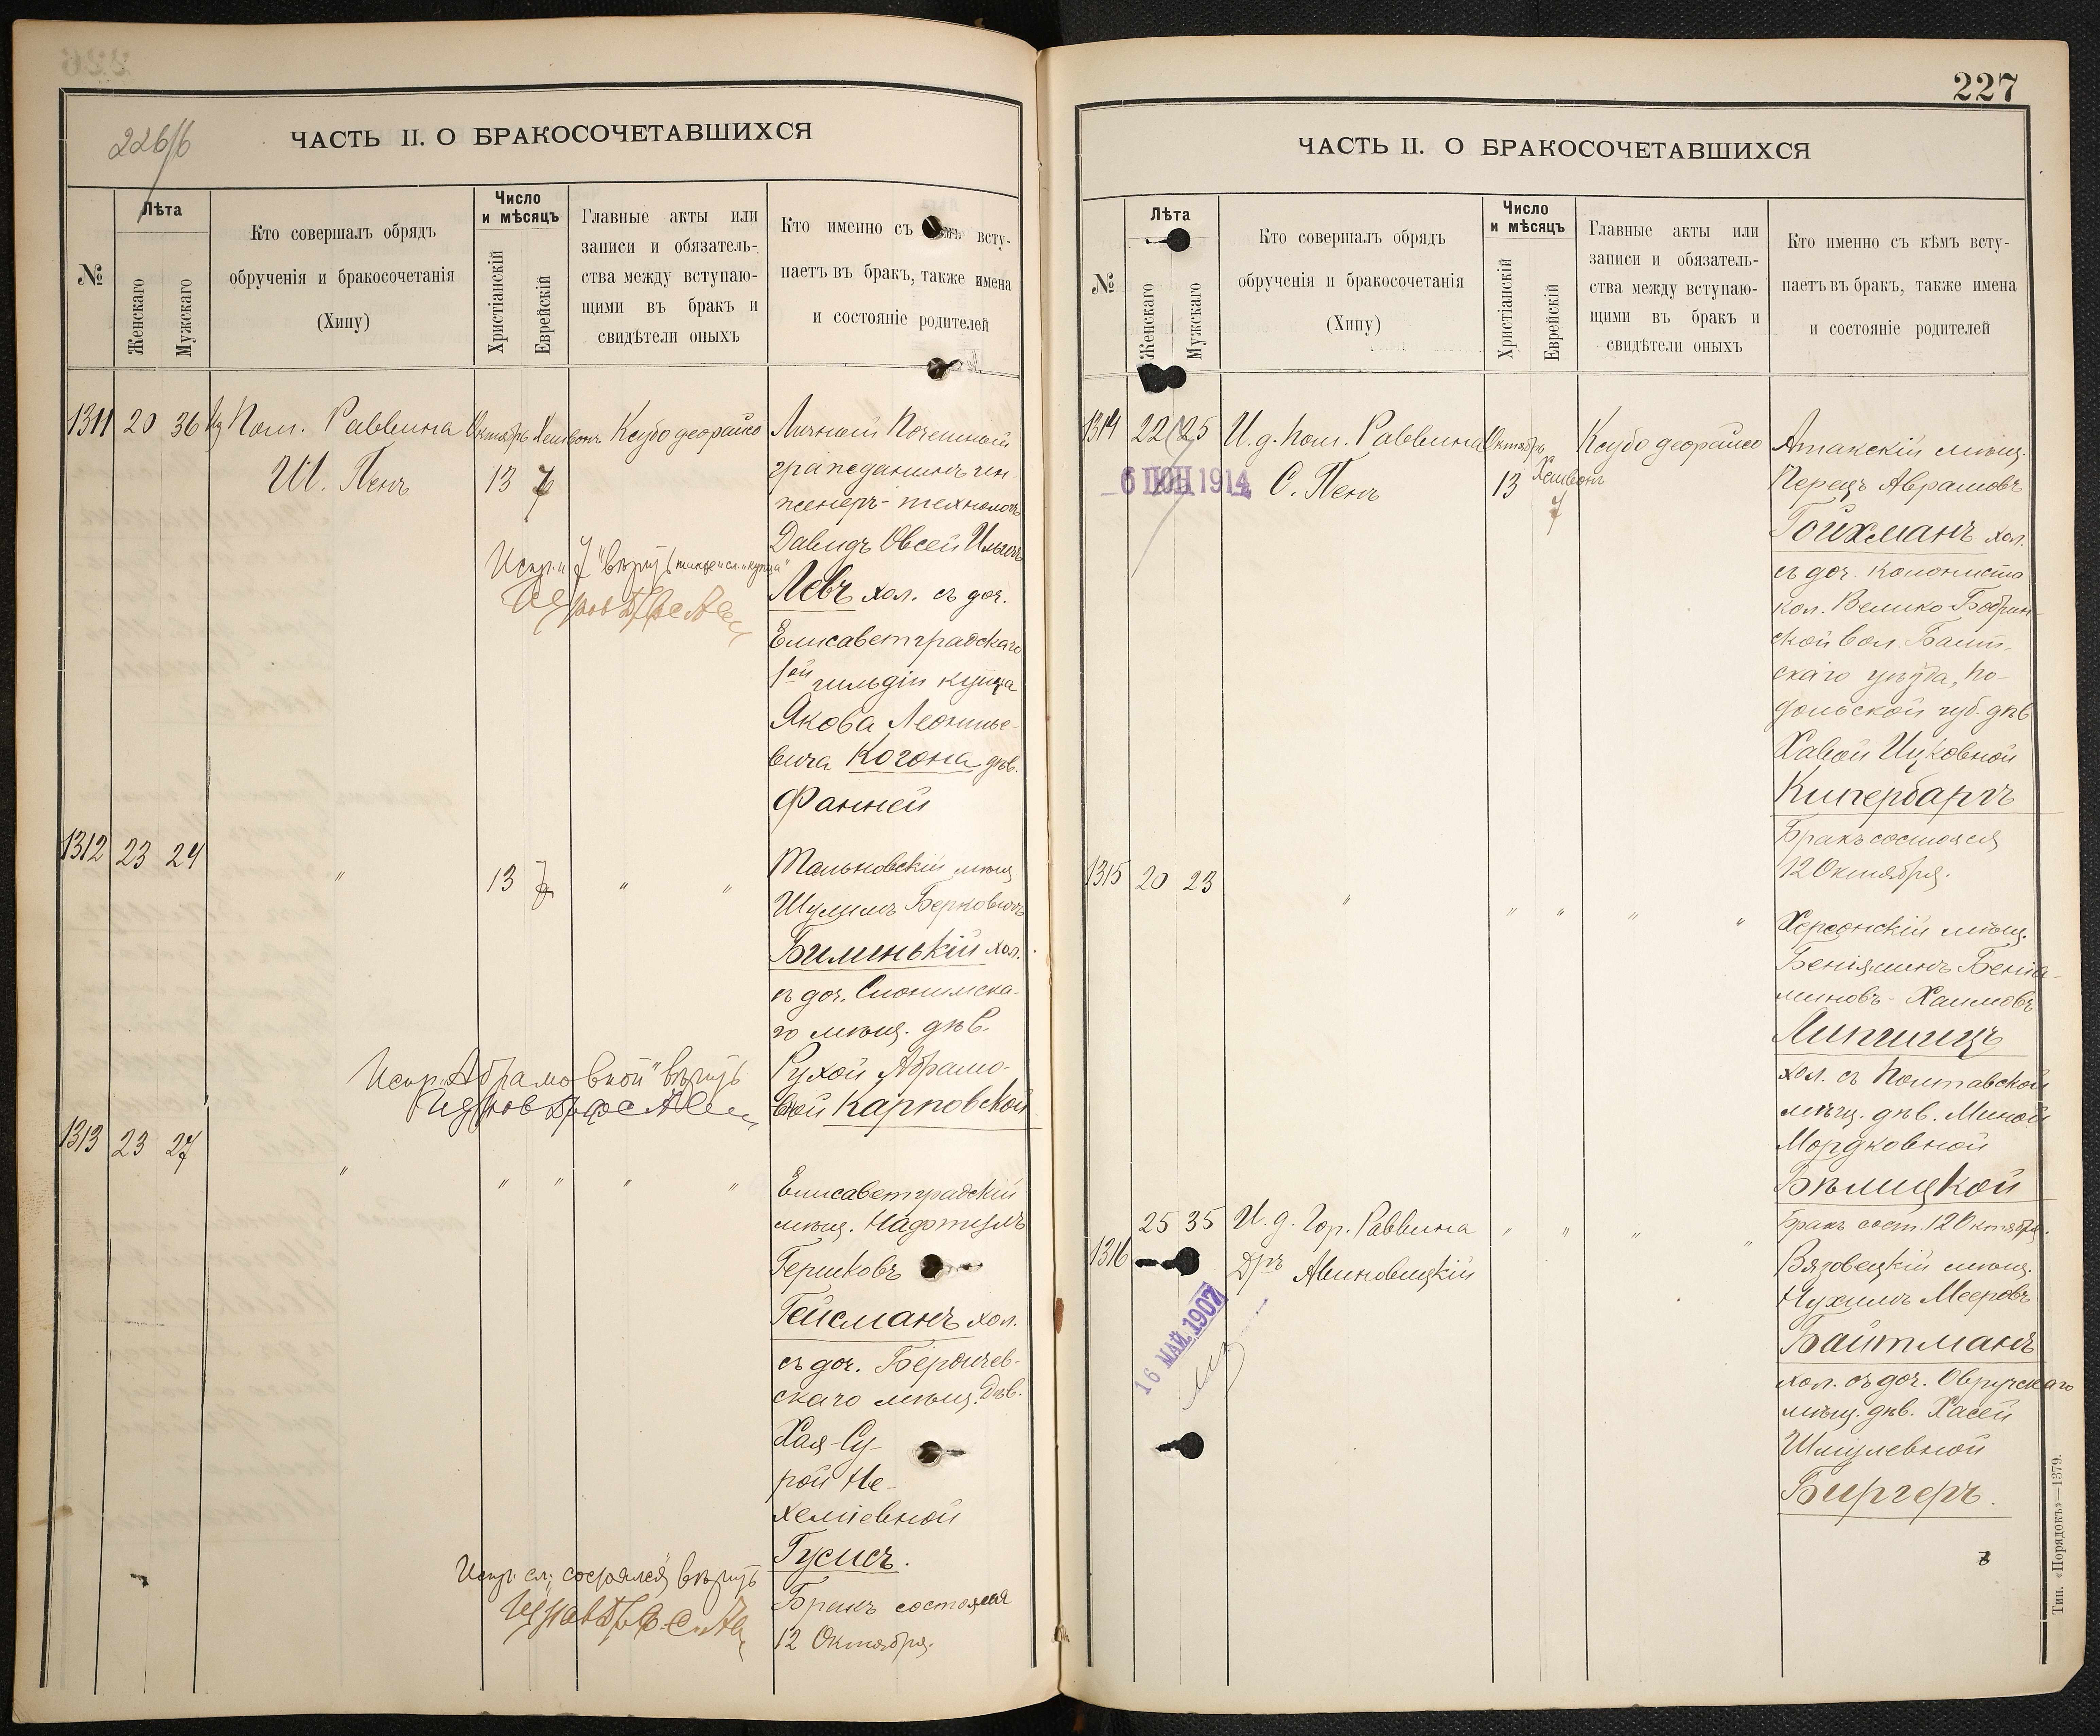 226/б
ЧАСТЬ II. О БРАКОСОЧЕТАВШИХСЯ
№
Лѣта
Женскаго
Мужскаго
Кто совершалъ обрядъ
обрученія и бракосочетанія
(Хипу)
Число
и мѣсяцъ
Христіанскій
Еврейскій
Главные акты или
записи и обязатель-
ства между вступаю-
щими въ бракъ и
свидѣтели оныхъ
Кто именно съ всту-
паетъ въ бракъ, также имена
и состояніе родителей
1311 20 36 Пом. Раввина Октябрь Хешвонъ Ксубо деорайсо
Ш. Пенъ 13 7
Личный Почетный
гражданинъ ин-
женеръ-технологъ
Давидъ Овсей
Левъ хол. съ доч.
Елисаветградскаго
1ой гильдіи купца
Якова Леонтье-
вича Когона дѣв.
Фанней
Испр. "7" вѣрить
1312 23 24 " 13 7 " "
Тальновскій мѣщ.
Шулимъ Берковичъ
Билинькій хол.
съ доч. Слонимска-
го мѣщ. дѣв.
Рухой Абрамо-
вной Карповской
Испр. "Абрамовной" вѣрить
1313 23 27 " " " " "
Елисаветградскій
мѣщ. Нафтулъ
Гершковъ
Гейсманъ хол.
съ доч. Бердичев-
скаго мѣщ. Дѣв.
Хая-Су-
рой Не-
хеміевной
Гусисъ.
Бракъ состоялся
12 Октября.
Испр. сл. "состоялся" вѣрить
227
ЧАСТЬ II. О БРАКОСОЧЕТАВШИХСЯ
№
Лѣта
Женскаго
Мужскаго
Кто совершалъ обрядъ
обрученія и бракосочетанія
(Хипу)
Число
и мѣсяцъ
Христіанскій
Еврейскій
Главные акты или
записи и обязатель-
ства между вступаю-
щими въ бракъ и
свидѣтели оныхъ
Кто именно съ кѣмъ всту-
паетъ въ бракъ, также имена
и состояніе родителей
1314 22 25 И. д. Пом. Раввина Октябрь Хешвонъ Ксубо деорайсо
6 ІЮН 1914 С. Пенъ 13 7
Атакскій мѣщ.
Перецъ Аврамовъ
Гойхманъ хол.
съ доч. колониста
кол. Велико Бобрин-
ской вол. Балт-
скаго уѣзда, По-
дольской губ. дѣв.
Хавой Ицковной
Кипербаргъ
Бракъ состоялся
12 Октября.
1315 20 23 " " " " "
Херсонскій мѣщ.
Беніяминъ Бенія-
миновъ-Хаимовъ
Липшицъ
хол. съ Полтавской
мѣщ. дѣв. Миной
Мордковной
Бѣлицкой
Бракъ сост. 12 Октября.
1316 25 35 И. д. Гор. Раввина " " " "
Дръ Авиновицкій
16 МАЙ 1907
Вязовецкій мѣщ.
Нухимъ Мееровъ
Байтманъ
хол. съ доч. Овручскаго
мѣщ. дѣв. Хасей
Шмулевной
Биргеръ.
Тип. «Порядокъ»—1379.